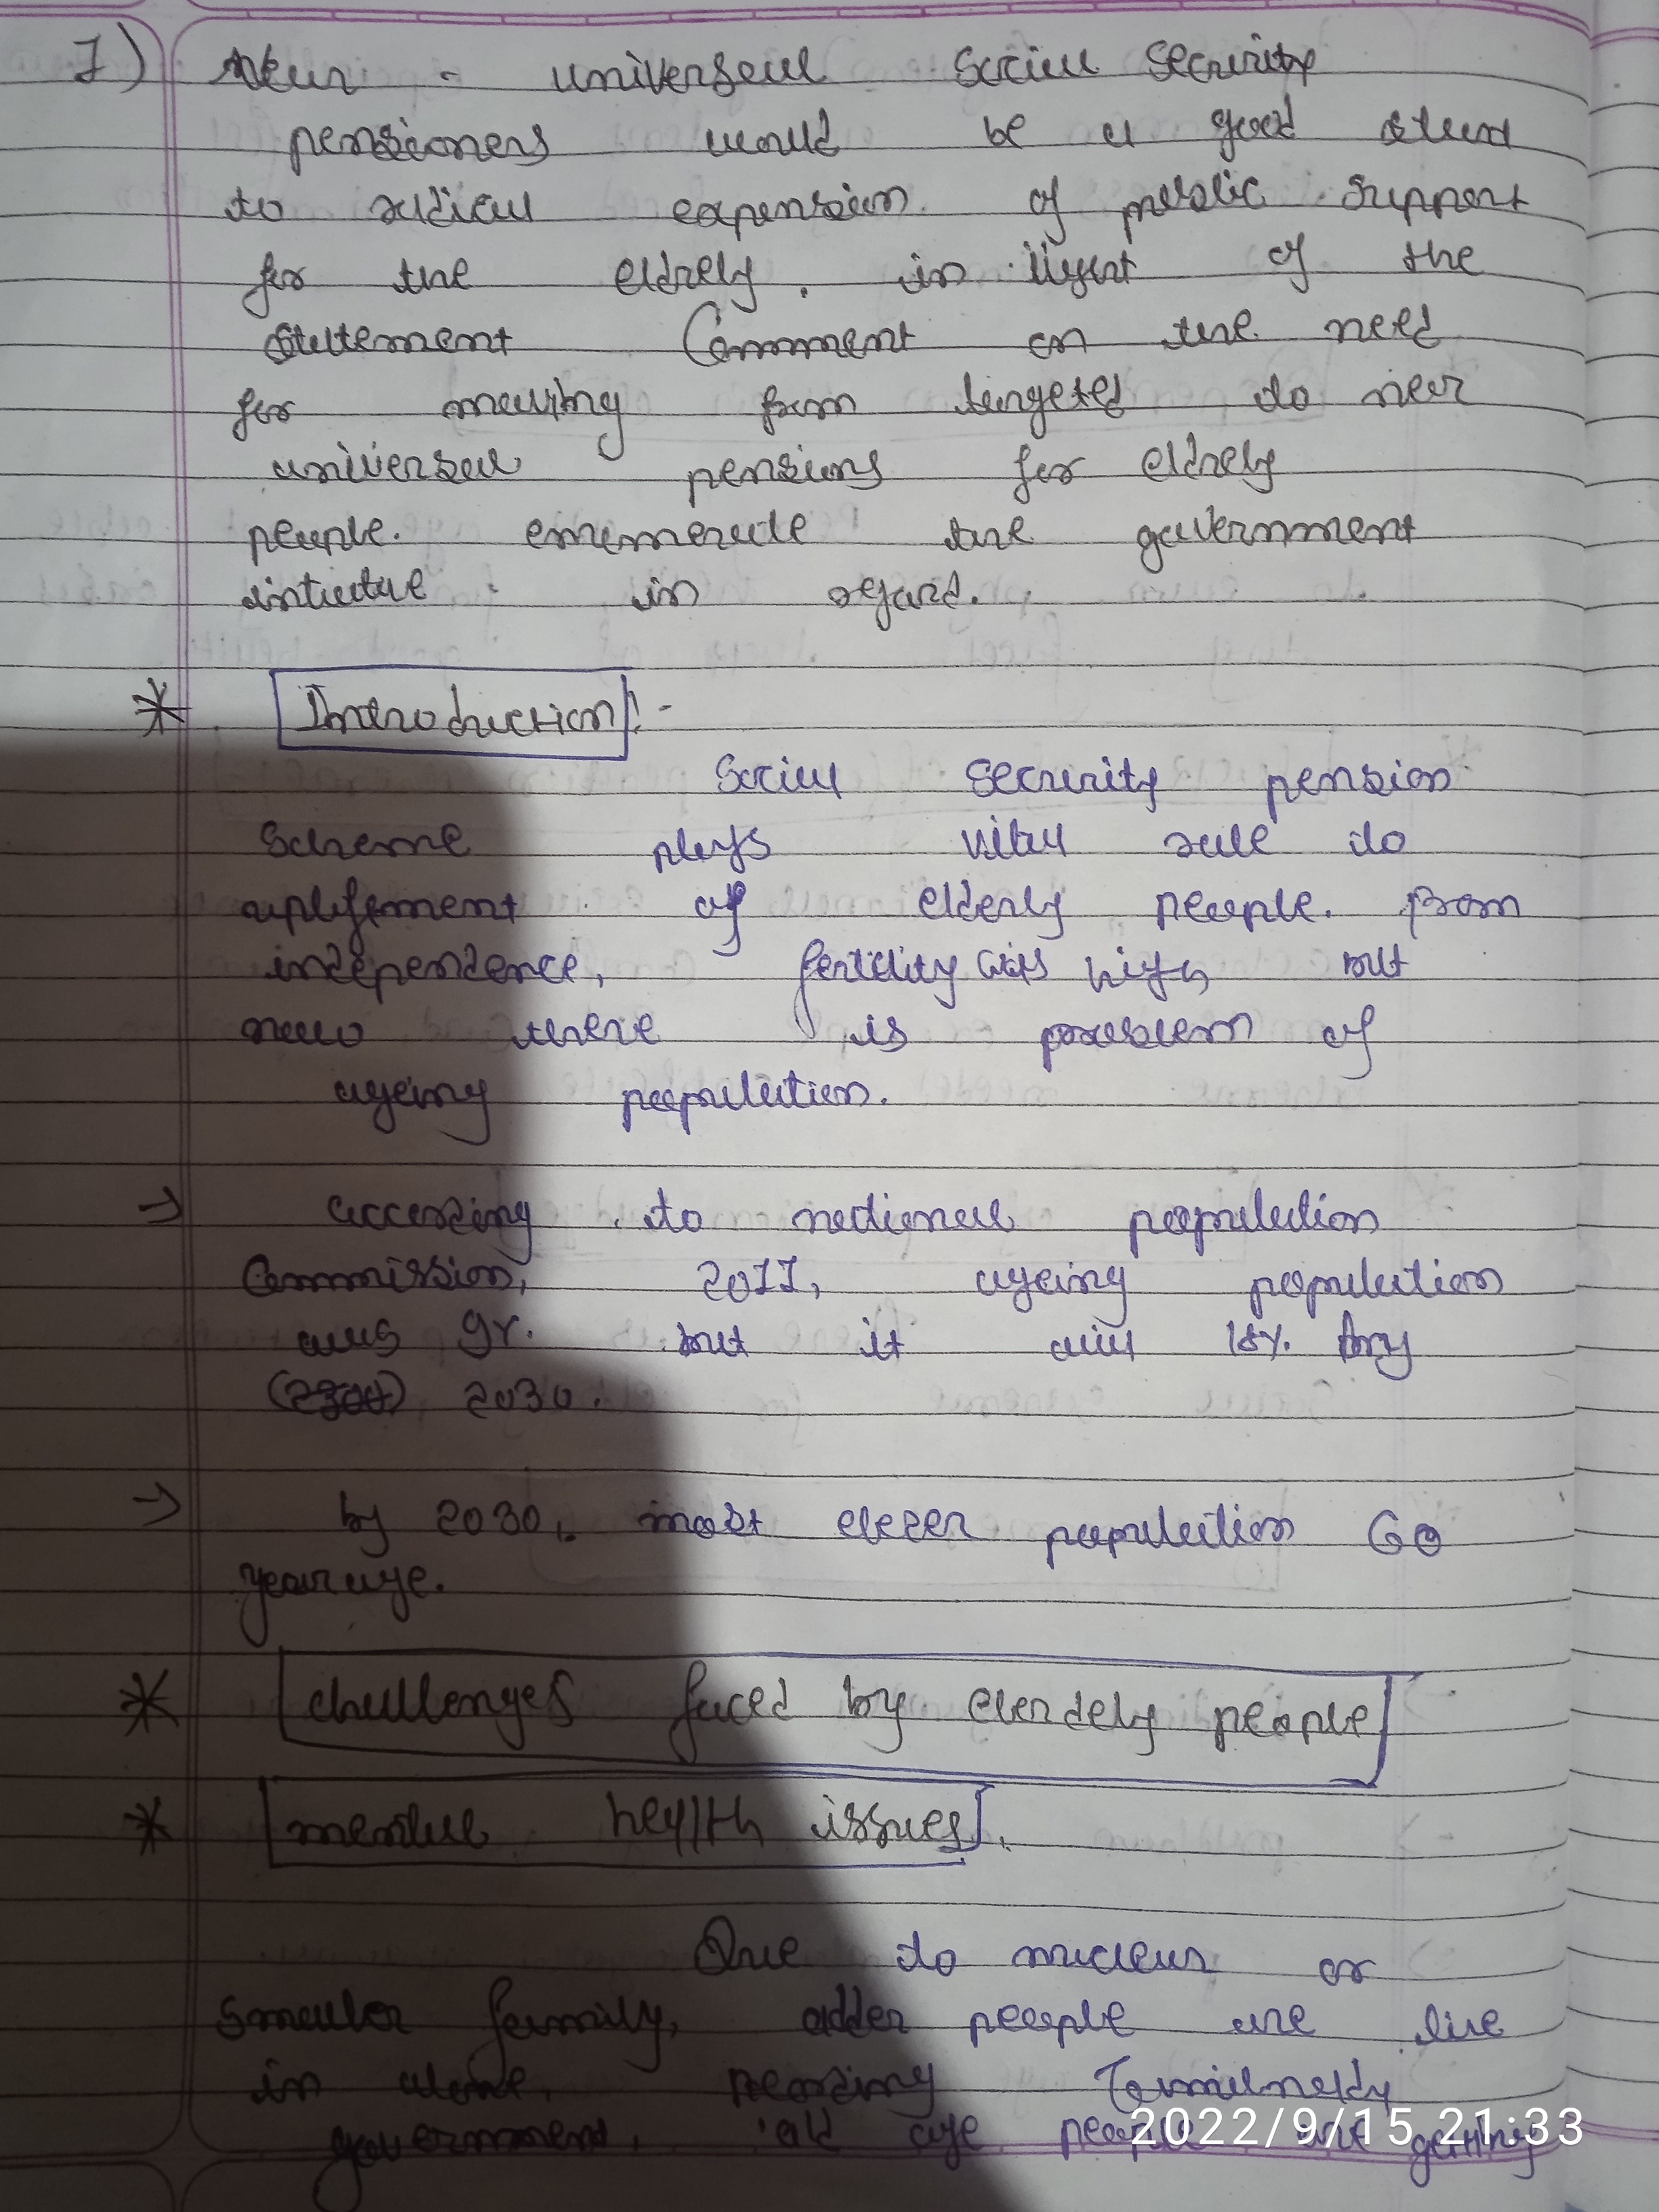 1) Near - universal Social Security
pensioners would be a good start
to radical expension of public support
for the eldrely, in light of the
statement Comment on the need
for moving from targeted to near
universal pensions for eldrely
people. enumerate the government
in regard.
* Introduction :-
Social Security pension
Scheme plays vital role to
of elderly people. From
independence, fertility was high, but
now there is problem of
ageing population.
→ according to national population
Commission, 2011, ageing population
was 9%. but it will 18% by
2030.
→ by 2030, most population 60
year age.
* challenges faced by elerdely people
* mental health issues.
Due to nucleus or
smaller family, older people are live
in alone. Tamilnadu
government, old age people are getting
2022/9/15 21:33